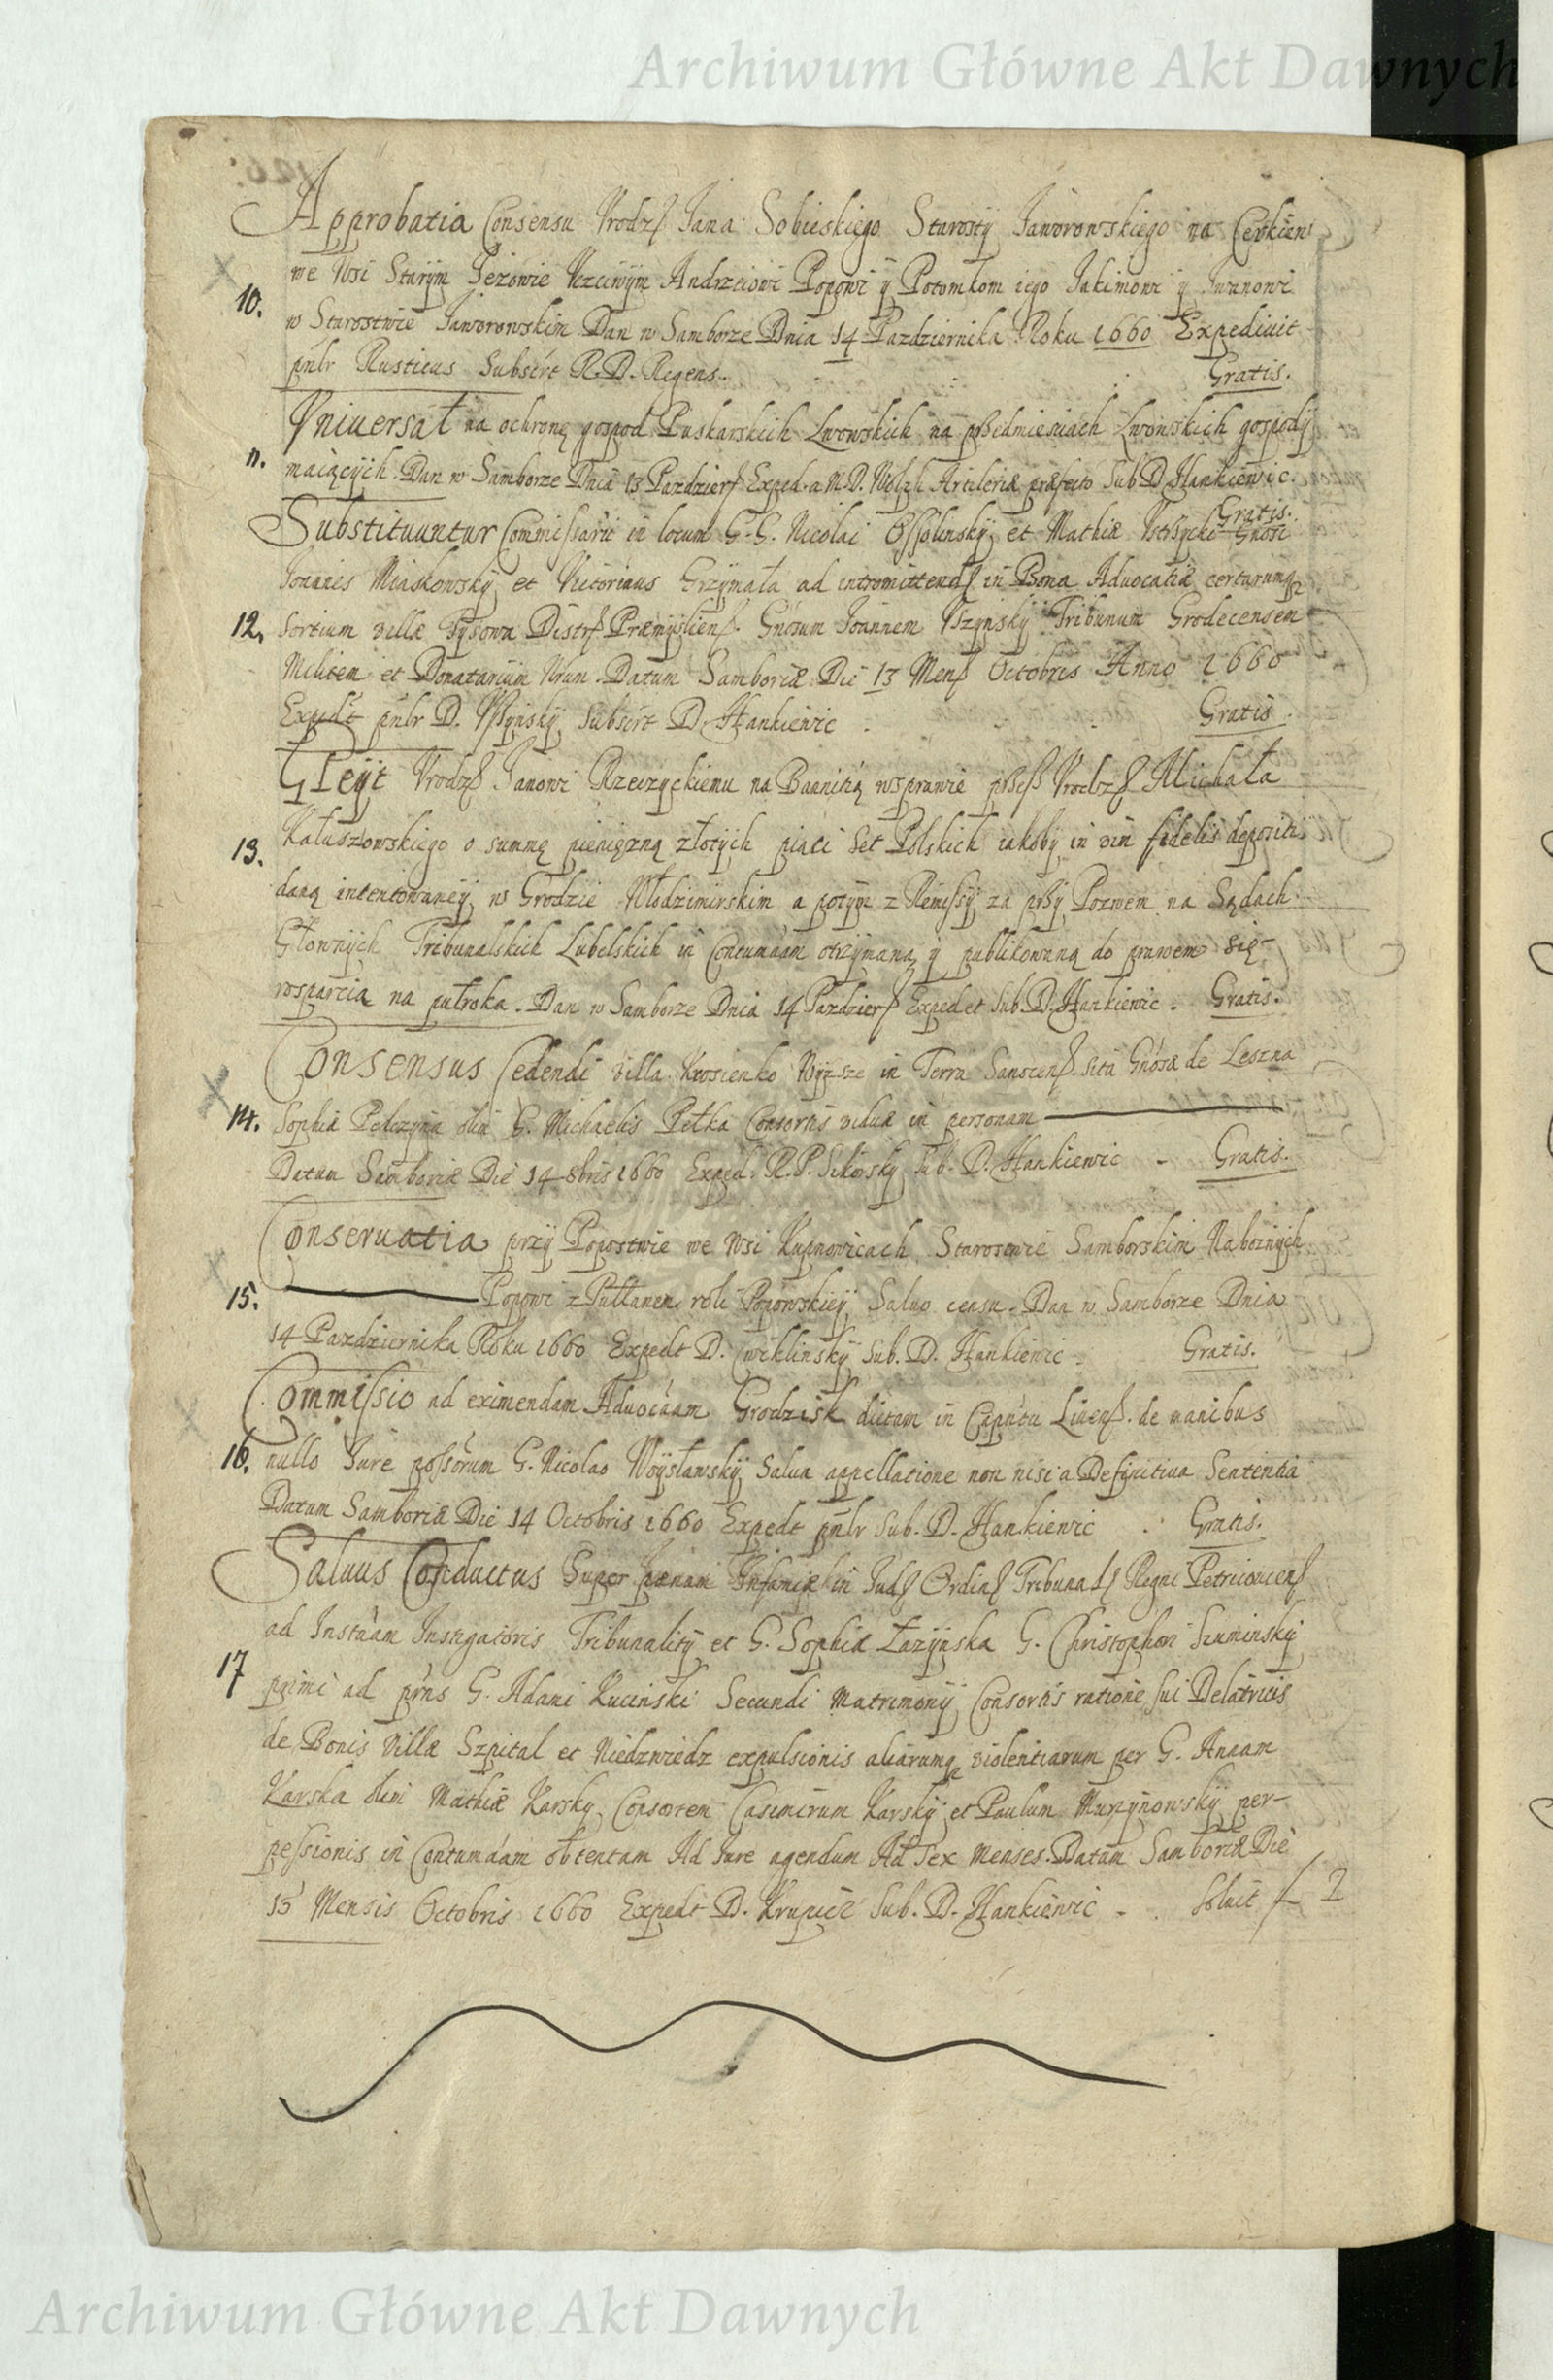 Archiwum Główne Akt Dawnych
Approbatia Consensu Vrodz. Jana Sobieskiego Starosty Jaworowskiego na Cerkiew
we Wsi Starym Jezowie Vczciwym Andrzeiowi Popowi y Potomkom iego Jakimowi y Iwanowi
10. w Starostwie Jaworowskim Dan w Samborze Dnia 14 Pazdziernika Roku 1660 Expediuit
pnlr Rusticus Subscrt R. D. Regens. Gratis.
Vniuersał na ochronę gospod Puskarskich Lwowskich na pszedmiesciach Lwowskich gospody
11. maiących. Dan w Samborze Dnia 13 Pazdzier. Exped. a M. D. Wolzh Artileriæ præfecto Sub D Hankiewic.
Gratis.
Substituuntur Commissarii in locum G. G. Nicolai Ossolinsky et Mathiæ Vstrzycki Gnosi
Joannes Miaskowsky et Victorinus Grzymała ad intromittend. in Bona Aduocatiæ certarumq
12. Sortium villæ Tysowa Distr. Præmyslien. Gnosum Joannem Vszynsky Tribunum Grodecensem
Militem et Donatarium Nrum. Datum Samboriæ Die 13 Mens. Octobris Anno 1660
Expedt pnlr D. Vszynsky Subscrt D Hankiewic Gratis.
Gleyt Vrodz. Janowi Rzeczyckiemu na Bannitią w sprawie przess Vrodz. Michała
13. Kałuszowskiego o summę pieniężną złotych piąci set Polskich iakoby in vim fidelis depositi
daną intentowaney w Grodzie Włodzimirskim a potym z Remissy za przy Pozwem na Sądach
Głownych Tribunalskich Lubelskich in Contumaam otrzymaną y publikowaną do prawem się
rosparcia na pułroka. Dan w Samborze Dnia 14 Pazdzier. Exped et Sub. D. Hankiewic. Gratis.
Consensus Cedendi villa Krosienko Wyższe in Terra Sanocens. sita Gnosæ de Leszna
14. Sophiæ Pełczyna olim G. Michaelis Pełka Consortis viduæ in personam
Datum Samboriæ Die 14 8bris 1660 Exped. R. P. Sikorsky Sub. D. Hankiewic Gratis.
Conseruatia przy Popostwie we Wsi Kupnowicach Starostwie Samborskim Naboznych
15. Popowi z Pułłanem roli Popowskiey Saluo censu. Dan w Samborze Dnia
14 Pazdziernika Roku 1660 Expedt D. Cwiklinsky Sub. D. Hankiewic. Gratis.
Commissio ad eximendam Aduocaam Grodzisk dictam in Capntu Liuens. de manibus
16. nullo Jure possorum G. Nicolao Woysławsky Salua appellatione non nisi a Definitiua Sententia
Datum Samboriæ Die 14 Octobris 1660 Expedt pnlr Sub. D. Hankiewic Gratis.
Saluus Conductus Super pænam Infamiæ in Jud. Ordin. Tribunal. Regni Petricouien.
ad Instaam Instigatoris Tribunality et G. Sophiæ Łazynska G. Christophori Szuminsky
17 primi ad prns G. Adami Kucinski Secundi Matrimony Consortis ratione sui Delatricis
de Bonis Villæ Szpital et Niedzwiedz expulsionis aliarumq violentiarum per G. Annam
Karska olim Mathiæ Karsky Consortem Casimirum Karsky et Paulum Murzynowsky per-
pessionis in Contumaam obtentam Ad Jure agendum Ad Sex Menses. Datum Samboriæ Die
15 Mensis Octobris 1660 Expedt D. Krupicz Sub. D. Hankiewic. Soluit f 2
Archiwum Główne Akt Dawnych